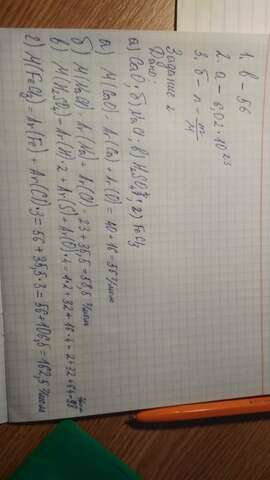 1. в - 56
2. а - 6,02 · 10²³
3. б - n = m/M
Задание 2
Дано:
а) CaO; б) NaCl; в) H₂SO₄; г) FeCl₃
а) M(CaO) = Ar(Ca) + Ar(O) = 40 + 16 = 56 г/моль
б) M(NaCl) = Ar(Na) + Ar(Cl) = 23 + 35,5 = 58,5 г/моль
в) M(H₂SO₄) = Ar(H)·2 + Ar(S) + Ar(O)·4 = 1·2 + 32 + 16·4 = 2 + 32 + 64 = 98 г/моль
г) M(FeCl₃) = Ar(Fe) + Ar(Cl)·3 = 56 + 35,5·3 = 56 + 106,5 = 162,5 г/моль